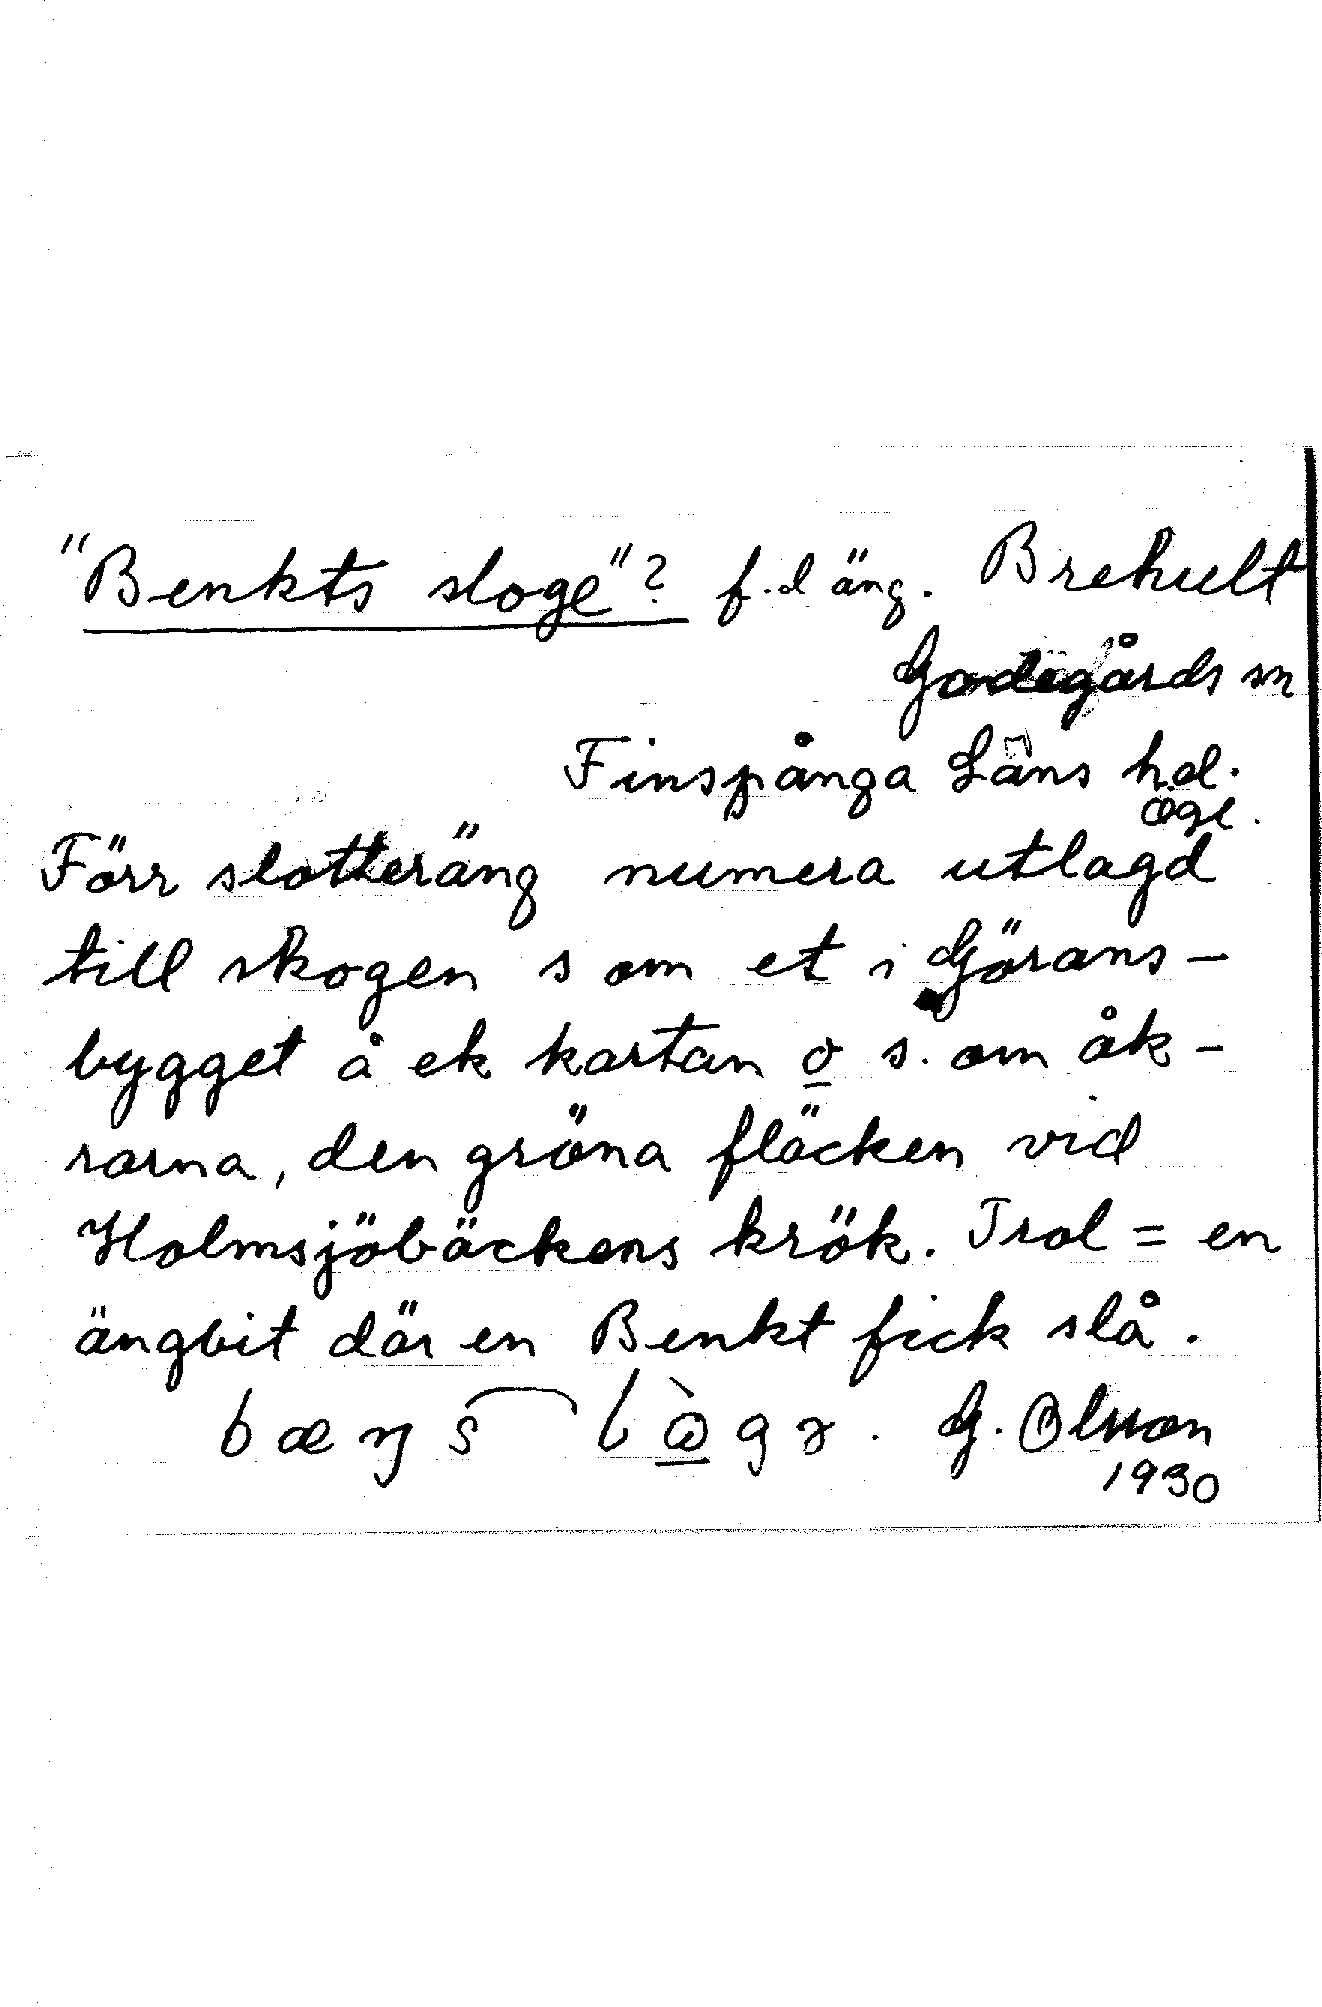 "Benkts sloge"? f.d äng. Brehult
Godegårds sn
Finspånga Läns hd.
Ögl.
Förr slotteräng numera utlagd
till skogen s om et i Görans-
bygget å ek kartan o s. om åk-
rarna, den gröna fläcken vid
Holmsjöbäckens krök. Trol = en
ängbit där en Benkt fick slå.
G. Olsson
1930